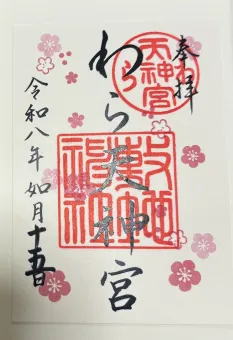 奉拝
わら天神宮
わら
天神宮
敷地神社
令和八年 如月十五日